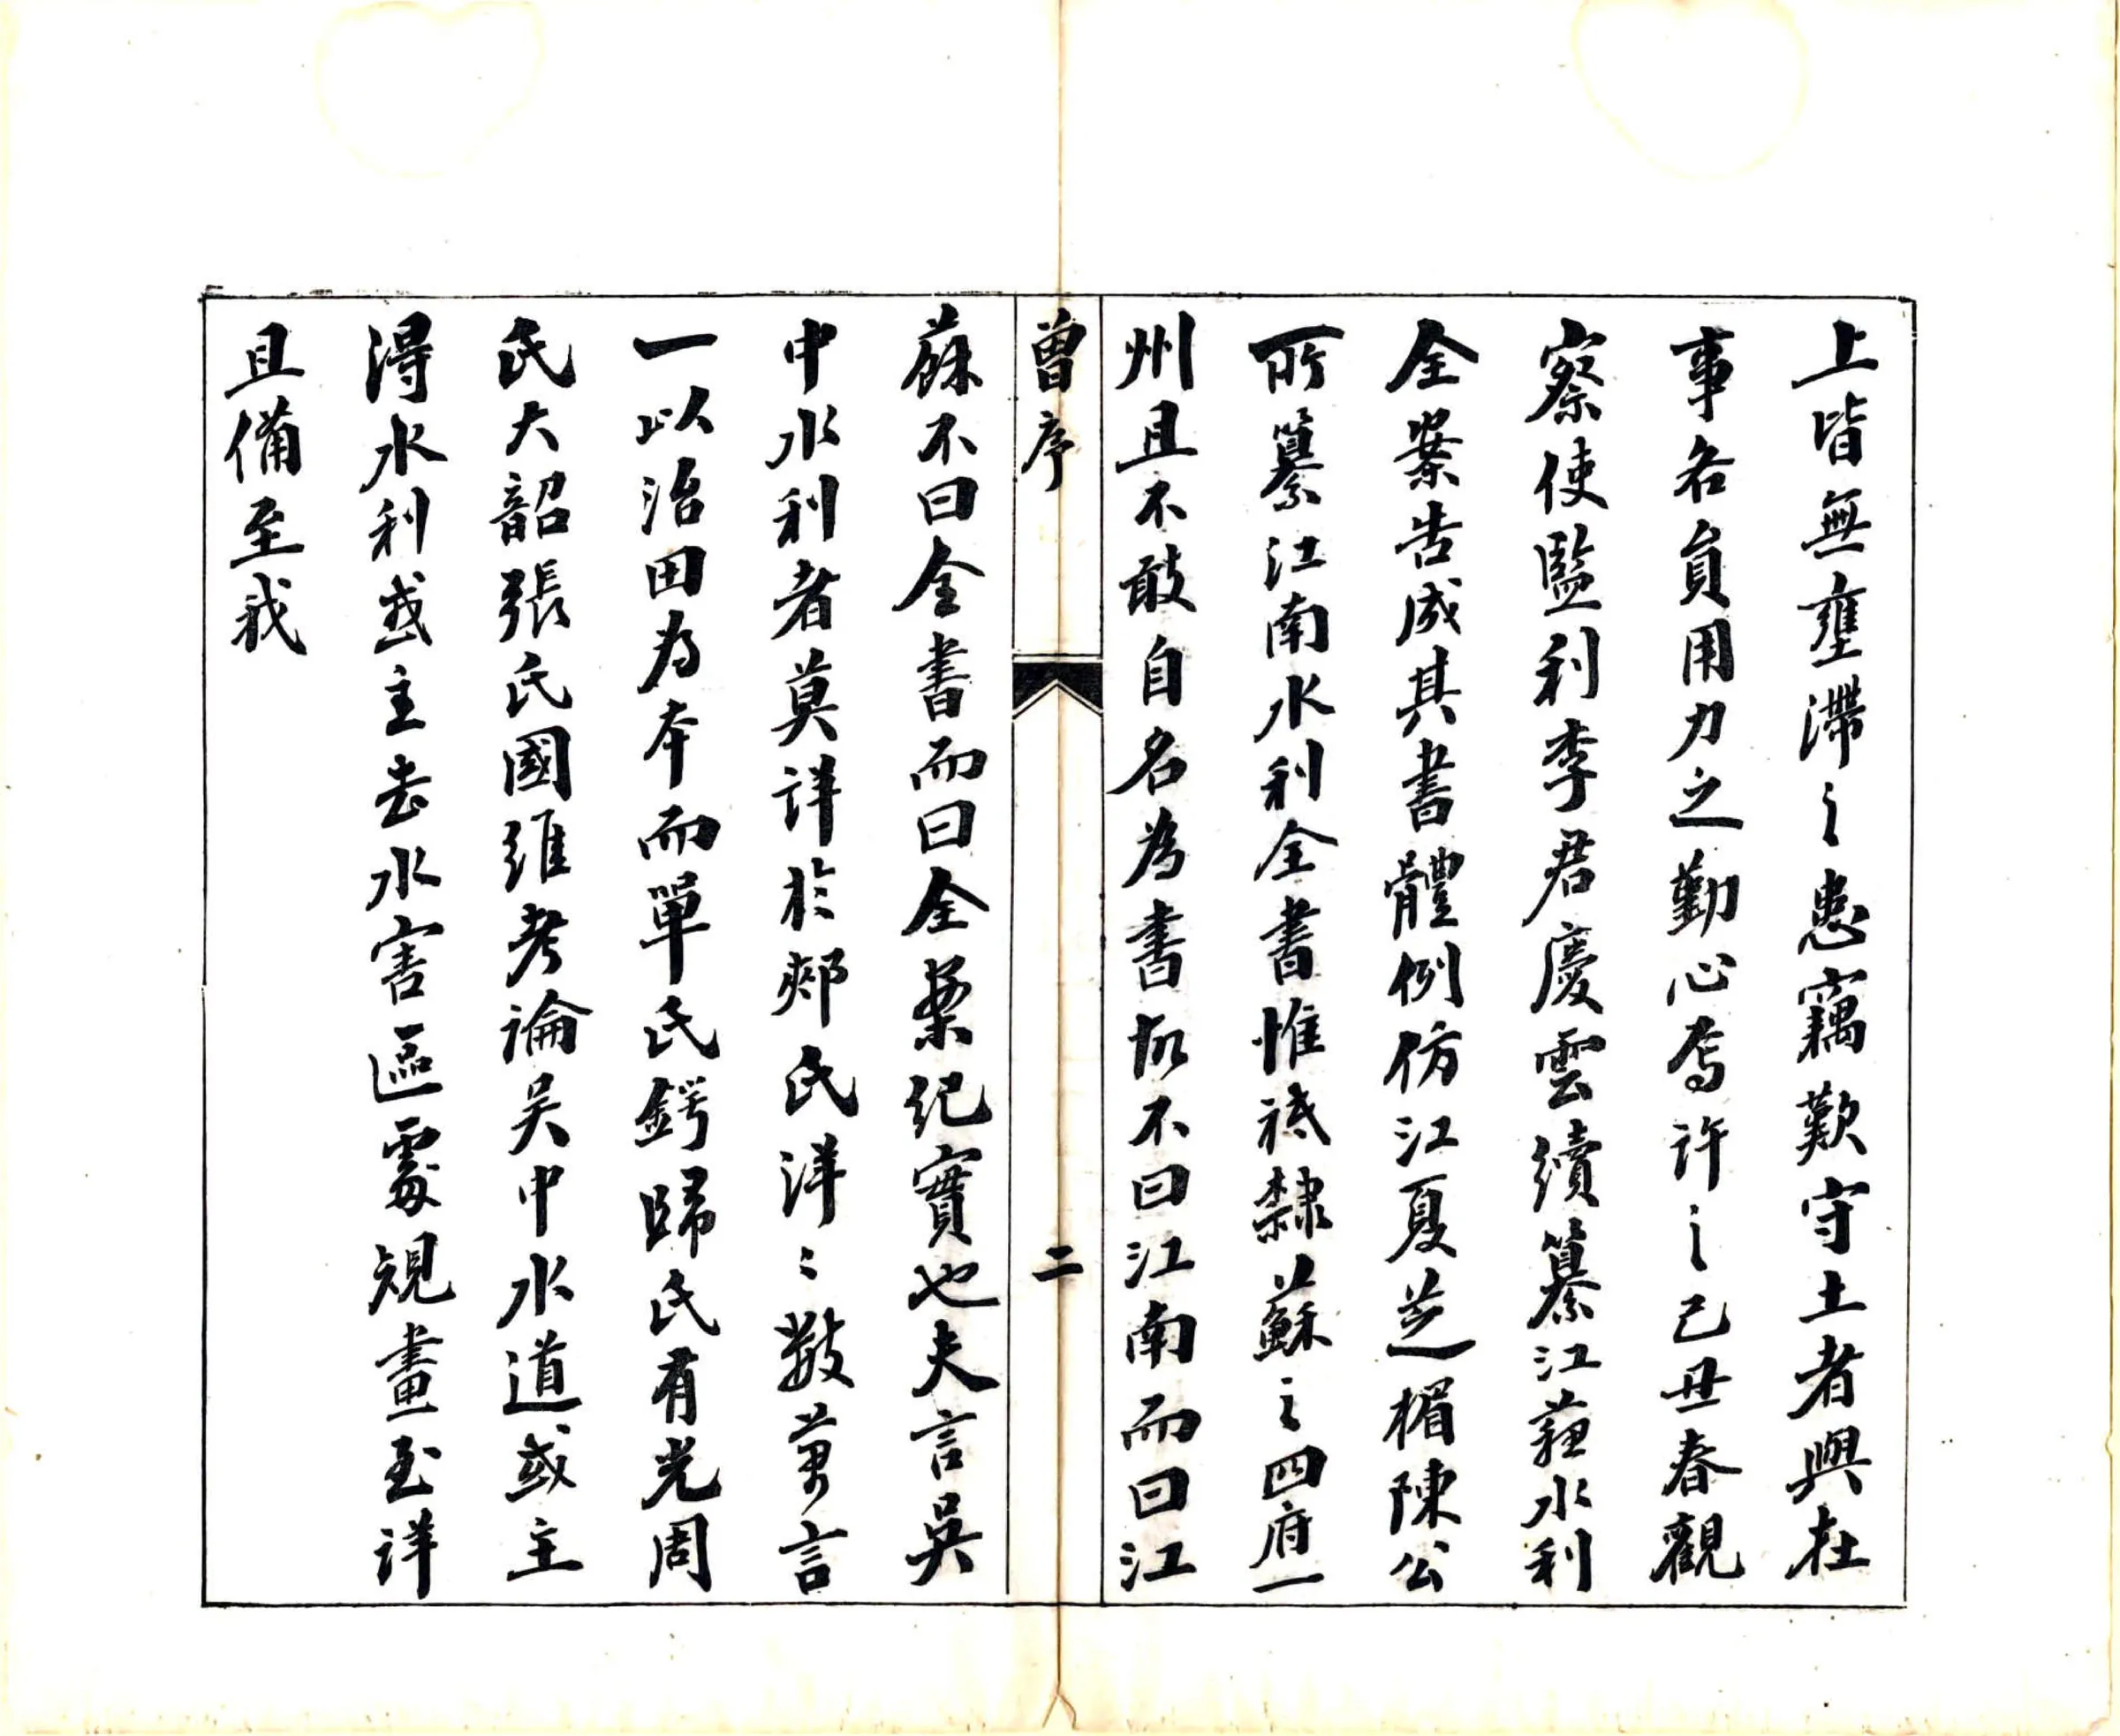 上皆無壅滯之患竊歎守土者與在
事各員用力之勤心焉許之己丑春觀
察使監利李君慶雲續纂江蘇水利
全案告成其書體例仿江夏芝楣陳公
所纂江南水利全書惟祗隸蘇之四府一
州且不敢自名為書故不曰江南而曰江
曾序
二
蘇不曰全書而曰全案紀實也夫言吳
中水利者莫詳於郟氏洋〻數萬言
一以治田為本而單氏鍔歸氏有光周
氏大韶張氏國維考論吳中水道或主
得水利或主去水害區處規畫至詳
且備至我